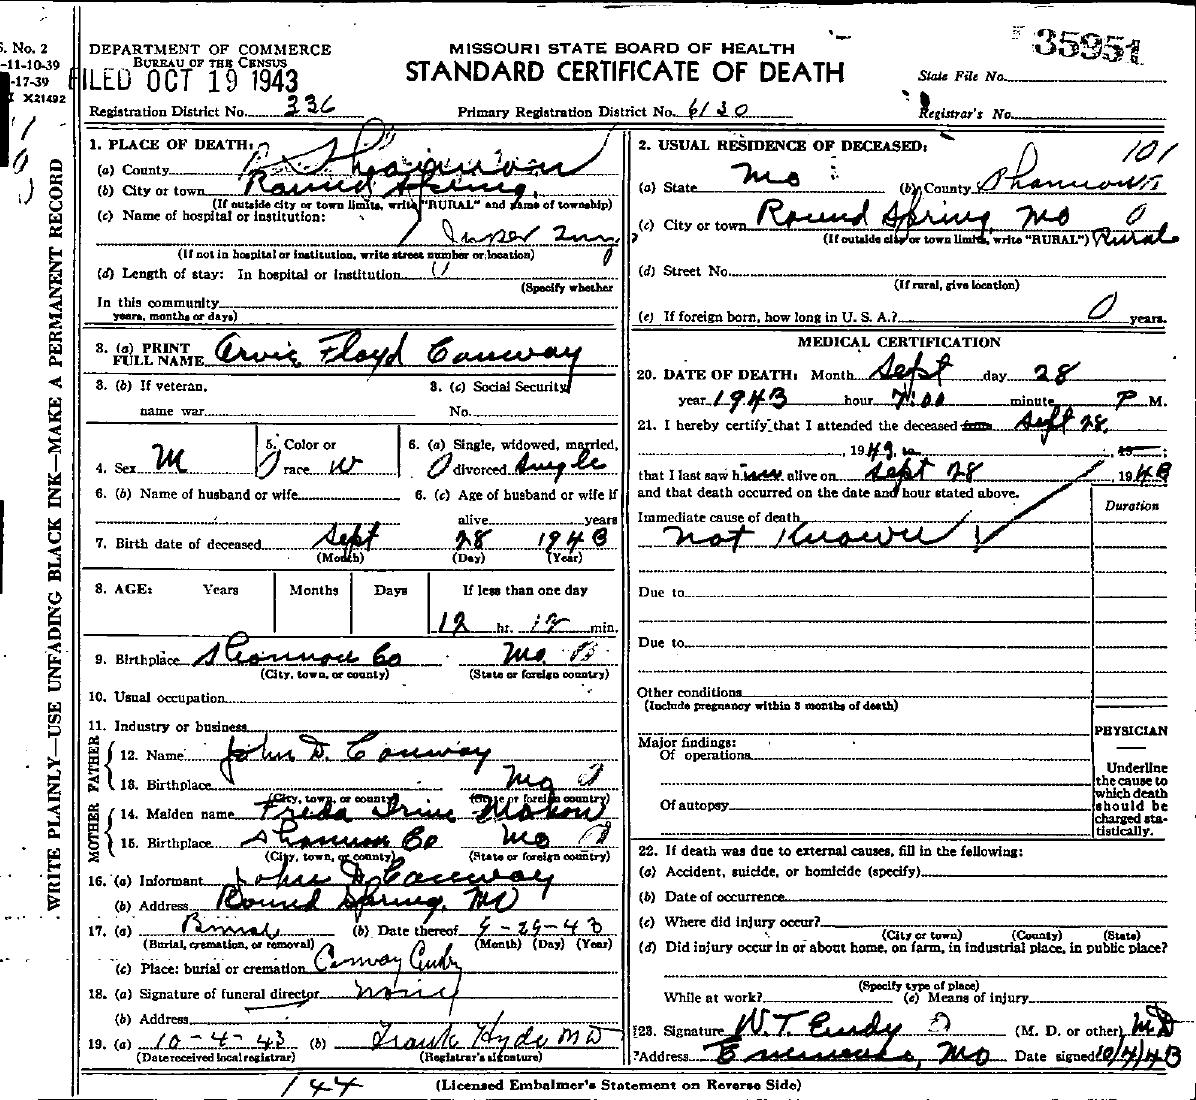 S. No. 2
-11-10-39
-17-39
X21492
WRITE PLAINLY—USE UNFADING BLACK INK—MAKE A PERMANENT RECORD
DEPARTMENT OF COMMERCE
BUREAU OF THE CENSUS
FILED OCT 19 1943
MISSOURI STATE BOARD OF HEALTH
STANDARD CERTIFICATE OF DEATH
35951
State File No.
Registration District No. 336
Primary Registration District No. 6130
Registrar's No.
1. PLACE OF DEATH:
(a) County Shannon
(b) City or town Round Spring,
(If outside city or town limits, write "RURAL" and name of township)
(c) Name of hospital or institution:
(If not in hospital or institution, write street number or location)
(d) Length of stay: In hospital or institution
(Specify whether
In this community
years, months or days)
3. (a) PRINT FULL NAME Arvie Floyd Conway
3. (b) If veteran, name war
3. (c) Social Security No.
4. Sex M
5. Color or race W
6. (a) Single, widowed, married, divorced Single
6. (b) Name of husband or wife
6. (c) Age of husband or wife if alive years
7. Birth date of deceased Sept 28 1943
(Month) (Day) (Year)
8. AGE: Years Months Days If less than one day
12 hr. 12 min.
9. Birthplace Shannon Co Mo
(City, town, or county) (State or foreign country)
10. Usual occupation
11. Industry or business
FATHER
12. Name John D. Conway
13. Birthplace Mo
(City, town, or county) (State or foreign country)
MOTHER
14. Maiden name Freda Irine Mahon
15. Birthplace Shannon Co Mo
(City, town, or county) (State or foreign country)
16. (a) Informant John D Conway
(b) Address Round Spring, Mo
17. (a) Burial (b) Date thereof 9-29-43
(Burial, cremation, or removal) (Month) (Day) (Year)
(c) Place: burial or cremation Conway
18. (a) Signature of funeral director None
(b) Address
19. (a) 10-4-43 (b) Frank Hyde MD
(Date received local registrar) (Registrar's signature)
144
2. USUAL RESIDENCE OF DECEASED:
101
(a) State Mo (b) County Shannon
(c) City or town Round Spring, Mo 0
(If outside city or town limits, write "RURAL") Rural
(d) Street No.
(If rural, give location)
(e) If foreign born, how long in U. S. A.? 0 years.
MEDICAL CERTIFICATION
20. DATE OF DEATH: Month Sept day 28
year 1943 hour 7:00 minute P M.
21. I hereby certify that I attended the deceased from Sept 28,
1943, to 19
that I last saw him alive on Sept 28, 1943
and that death occurred on the date and hour stated above.
Duration
Immediate cause of death
Not Known
Due to
Due to
Other conditions
(Include pregnancy within 3 months of death)
Major findings:
Of operations
Of autopsy
PHYSICIAN
Underline
the cause to
which death
should be
charged sta-
tistically.
22. If death was due to external causes, fill in the following:
(a) Accident, suicide, or homicide (specify)
(b) Date of occurrence
(c) Where did injury occur?
(City or town) (County) (State)
(d) Did injury occur in or about home, on farm, in industrial place, in public place?
(Specify type of place)
While at work? (e) Means of injury
23. Signature W.T. Eudy (M. D. or other) MD
Address Eminence, Mo Date signed 10/4/43
(Licensed Embalmer's Statement on Reverse Side)